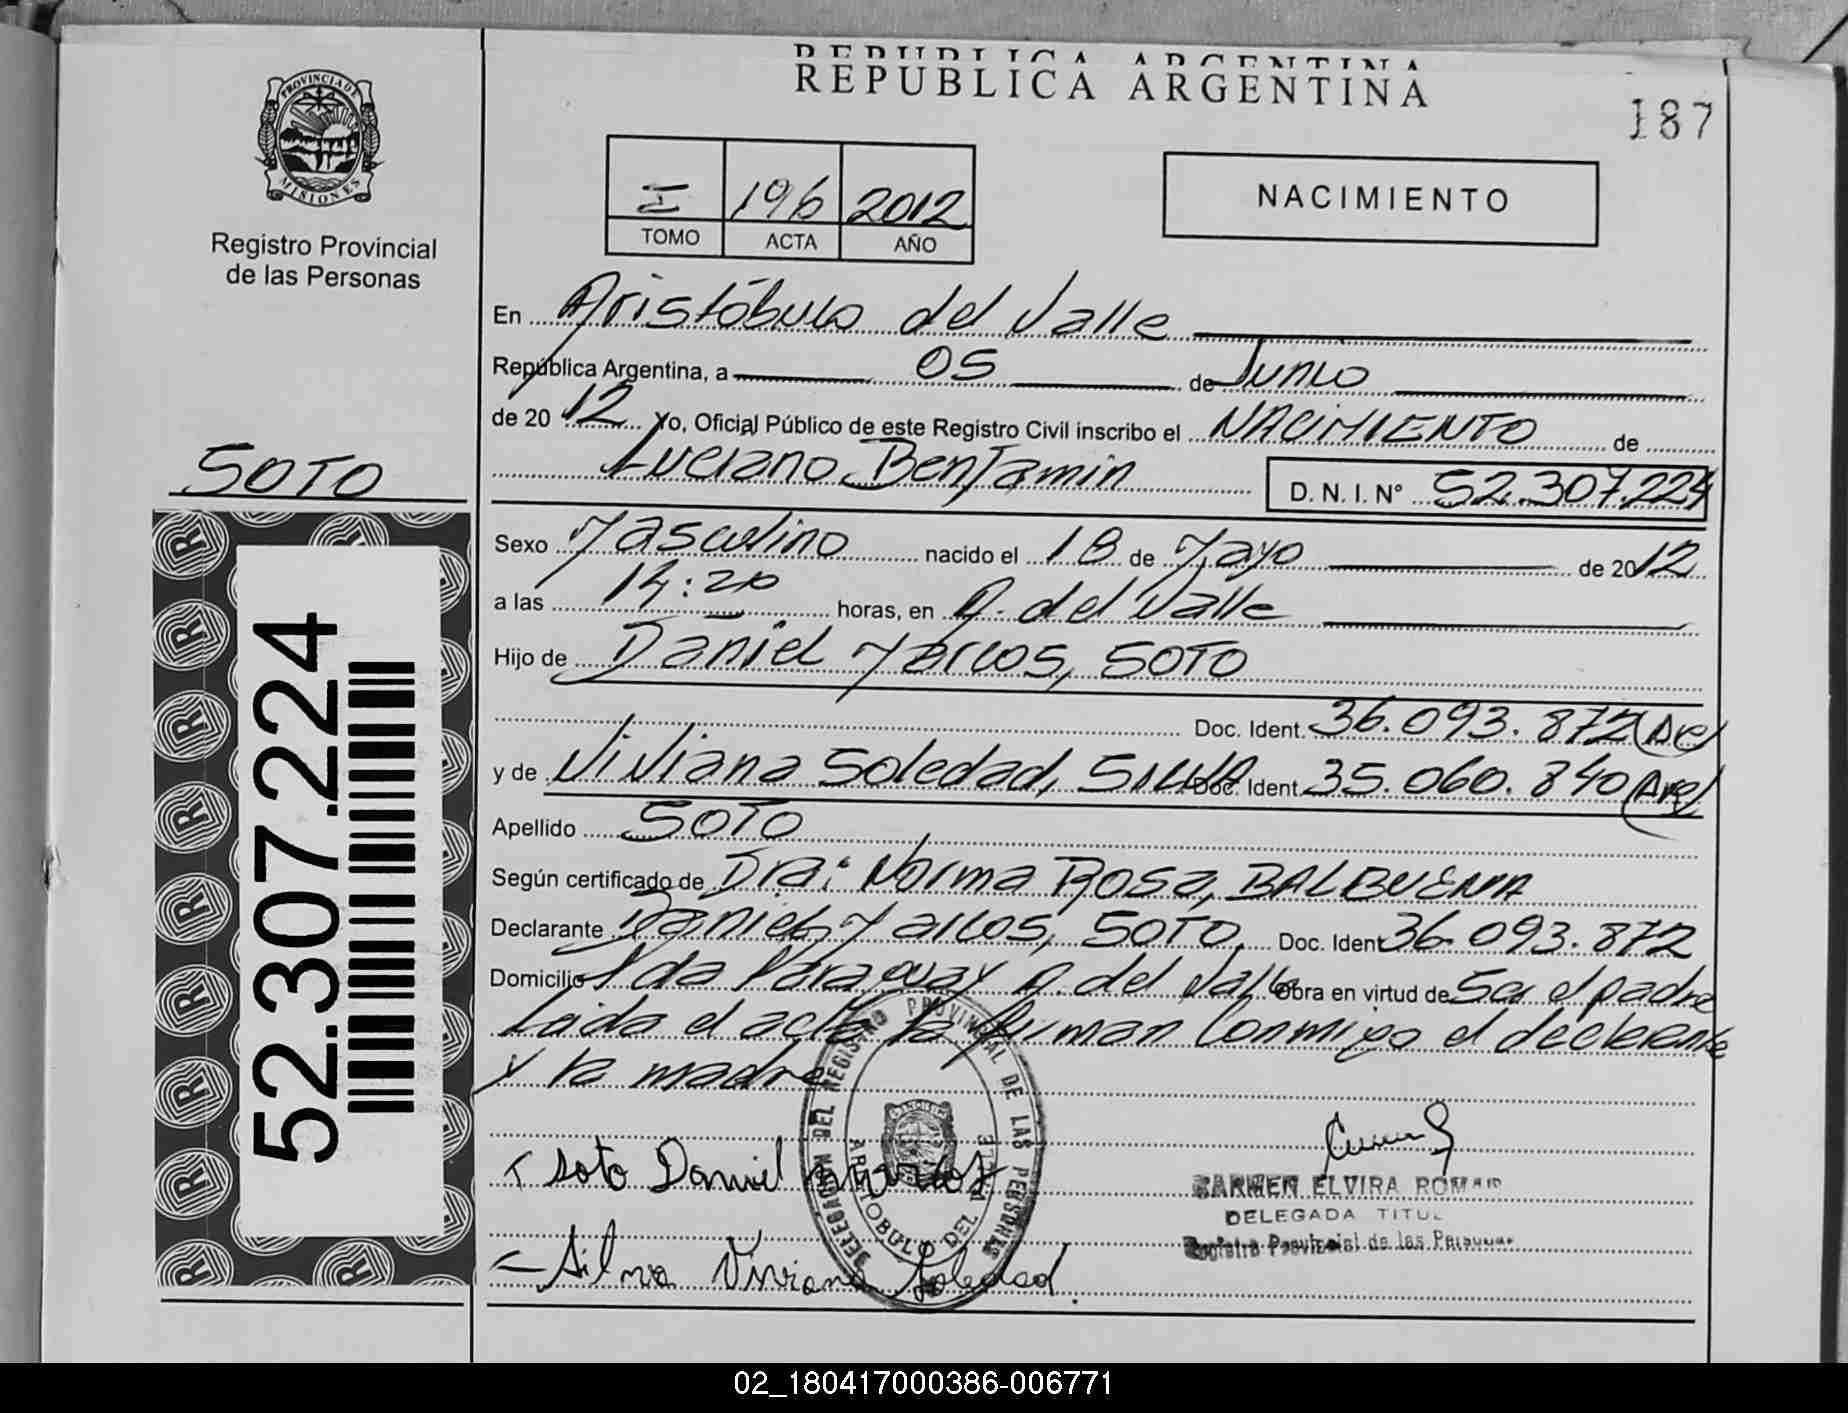 PROVINCIA DE
MISIONES
Registro Provincial
de las Personas
SOTO
52.307.224
REPUBLICA ARGENTINA
REPUBLICA ARGENTINA
187
I 196 2012
TOMO ACTA AÑO
NACIMIENTO
En Aristóbulo del Valle
República Argentina, a 05 de Junio
de 2012 Yo, Oficial Público de este Registro Civil inscribo el NACIMIENTO de
Luciano Benjamin D. N. I. Nº 52.307.224
Sexo Masculino nacido el 18 de Mayo de 2012
a las 14:20 horas, en A. del Valle
Hijo de Daniel Marcos, SOTO
Doc. Ident. 36.093.872 (Arg)
y de Viviana Soledad, SILVA Doc. Ident. 35.060.840 (Arg)
Apellido SOTO
Según certificado de Dra: Norma Rosa, BALBUENA
Declarante Daniel Marcos, SOTO. Doc. Ident 36.093.872
Domicilio Paraguay A. del Valle Obra en virtud de Ser el padre
Leida el acta la firman Conmigo el declarante
y la madre
DELEGACION DEL REGISTRO PROVINCIAL DE LAS PERSONAS
ARISTOBULO DEL VALLE
Soto Daniel marcos
Silva Viviana Soledad.
CARMEN ELVIRA ROMAN
DELEGADA TITUL
Registro Provincial de las Personas
02_180417000386-006771